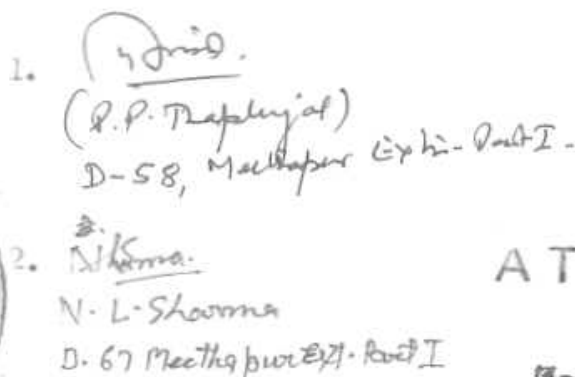 1.
(P.P. Thapliyal)
D-58, Meethapur Extn. Part I.
2. NLSharma.
N. L. Sharma
D. 67 Meethapur Ext. Part I
A T